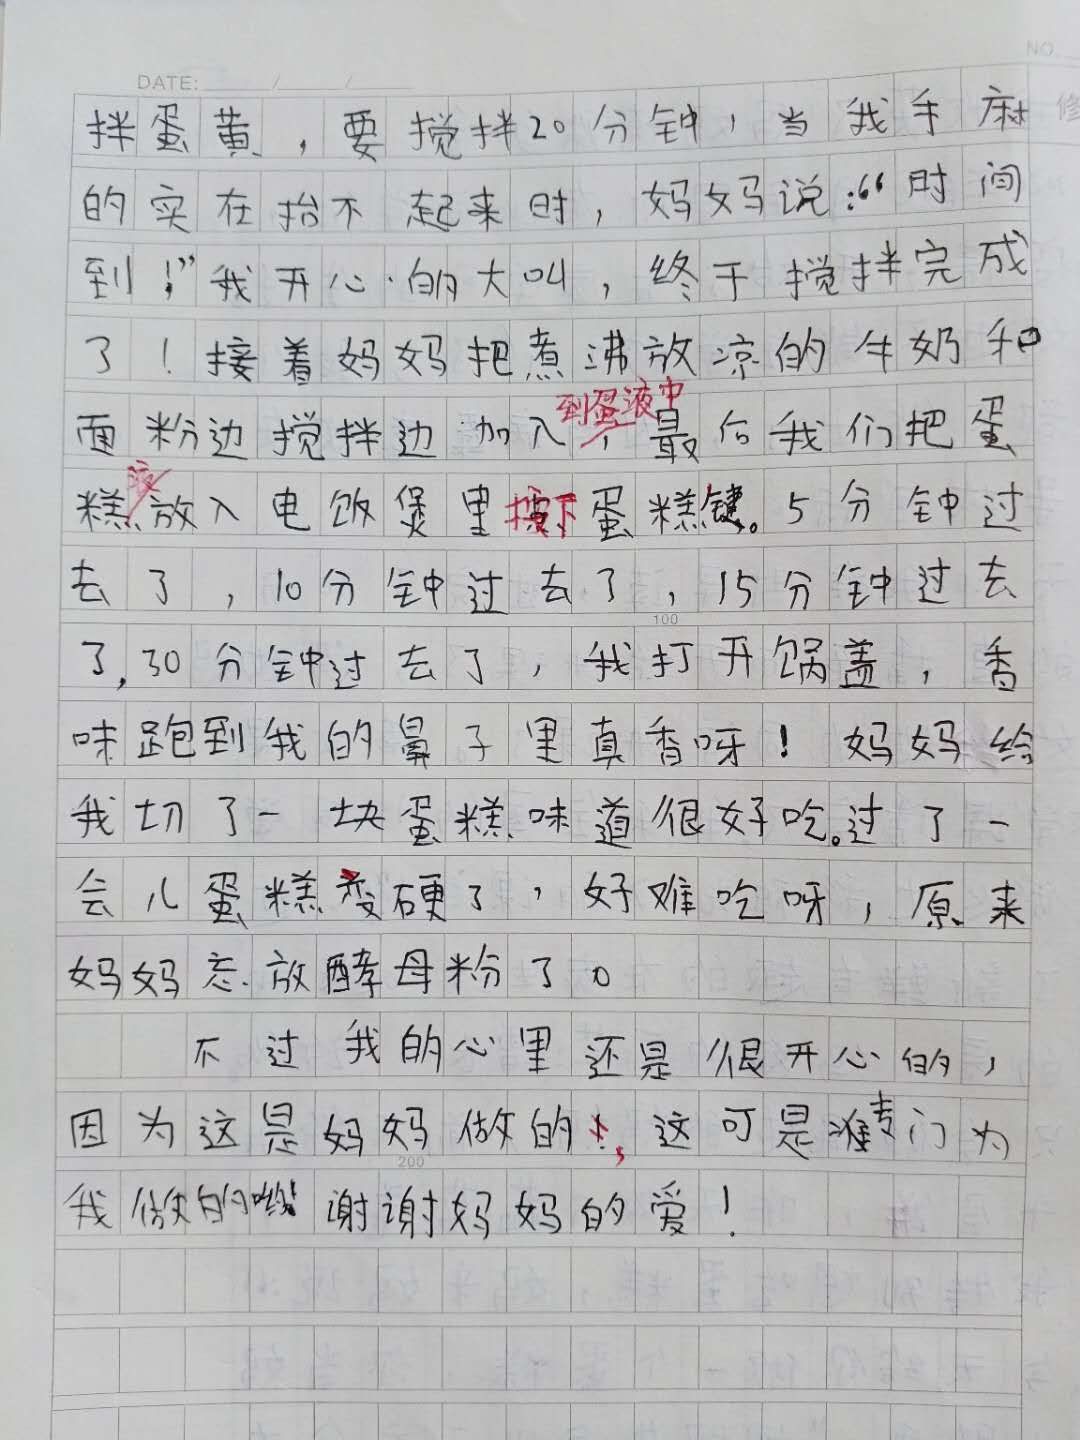 NO.
DATE: / /
拌蛋黄，要搅拌20分钟，当我手麻
的实在抬不起来时，妈妈说：“时间
到！”我开心的大叫，终于搅拌完成
了！接着妈妈把煮沸放凉的牛奶和
到蛋液中
面粉边搅拌边加入，最后我们把蛋
液
糕放入电饭煲里按下蛋糕键。5分钟过
去了，10分钟过去了，15分钟过去
100
了，30分钟过去了，我打开锅盖，香
味跑到我的鼻子里真香呀！妈妈给
我切了一块蛋糕味道很好吃。过了一
会儿蛋糕变硬了，好难吃呀，原来
妈妈忘放酵母粉了。
不过我的心里还是很开心的，
因为这是妈妈做的，这可是专门为
200
我做的哟谢谢妈妈的爱！